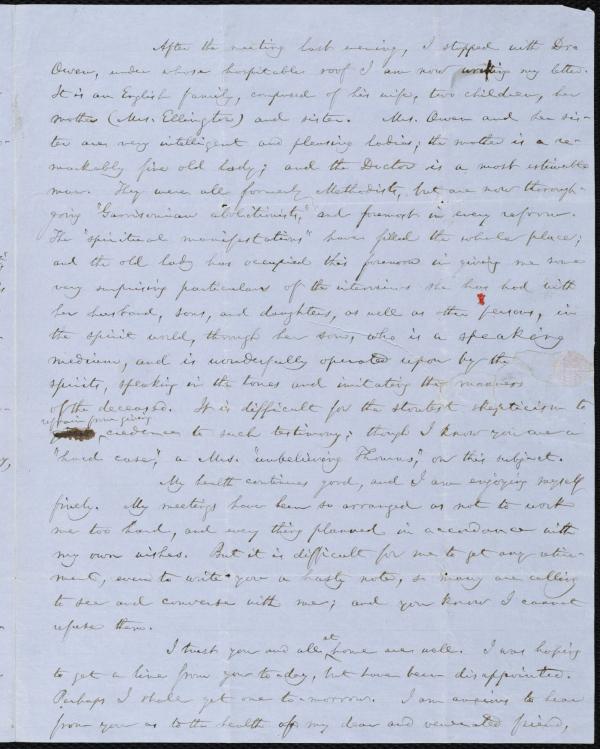 After the meeting last evening, I stopped with Dr.
Owen, under whose hospitable roof I am now writing my letter.
It is an English family, composed of his wife, two children, her
mother (Mrs. Ellington) and sister. Mrs. Owen and her sis-
ter are very intelligent and pleasing ladies; the mother is a re-
markably fine old lady; and the Doctor is a most estimable
man. They were all formerly Methodists, but are now thorough-
going "Garrisonian abolitionists," and foremost in every reform.
The "spiritual manifestations" have filled the whole place;
and the old lady has occupied this forenoon in giving me some
very surprising particulars of the interviews she has had with
her husband, sons, and daughters, as well as other persons, in
the spirit world, through her son, who is a speaking
medium, and is wonderfully operated upon by the
spirits, speaking in the tones and imitating the manners
of the deceased. It is difficult for the stoutest skepticism to
refrain from giving
credence to such testimony; though I know you are a
"hard case," a Mrs. "unbelieving Thomas," on this subject.
My health continues good, and I am enjoying myself
finely. My meetings have been so arranged as not to work
me too hard, and every thing planned in accordance with
my own wishes. But it is difficult for me to get any retire-
ment, even to write you a hasty note, so many are calling
to see and converse with me; and you know I cannot
refuse them.
I trust you and all at home are well. I was hoping
to get a line from you to-day, but have been disappointed.
Perhaps I shall get one to-morrow. I am anxious to hear
from you as to the health of my dear and venerated friend,